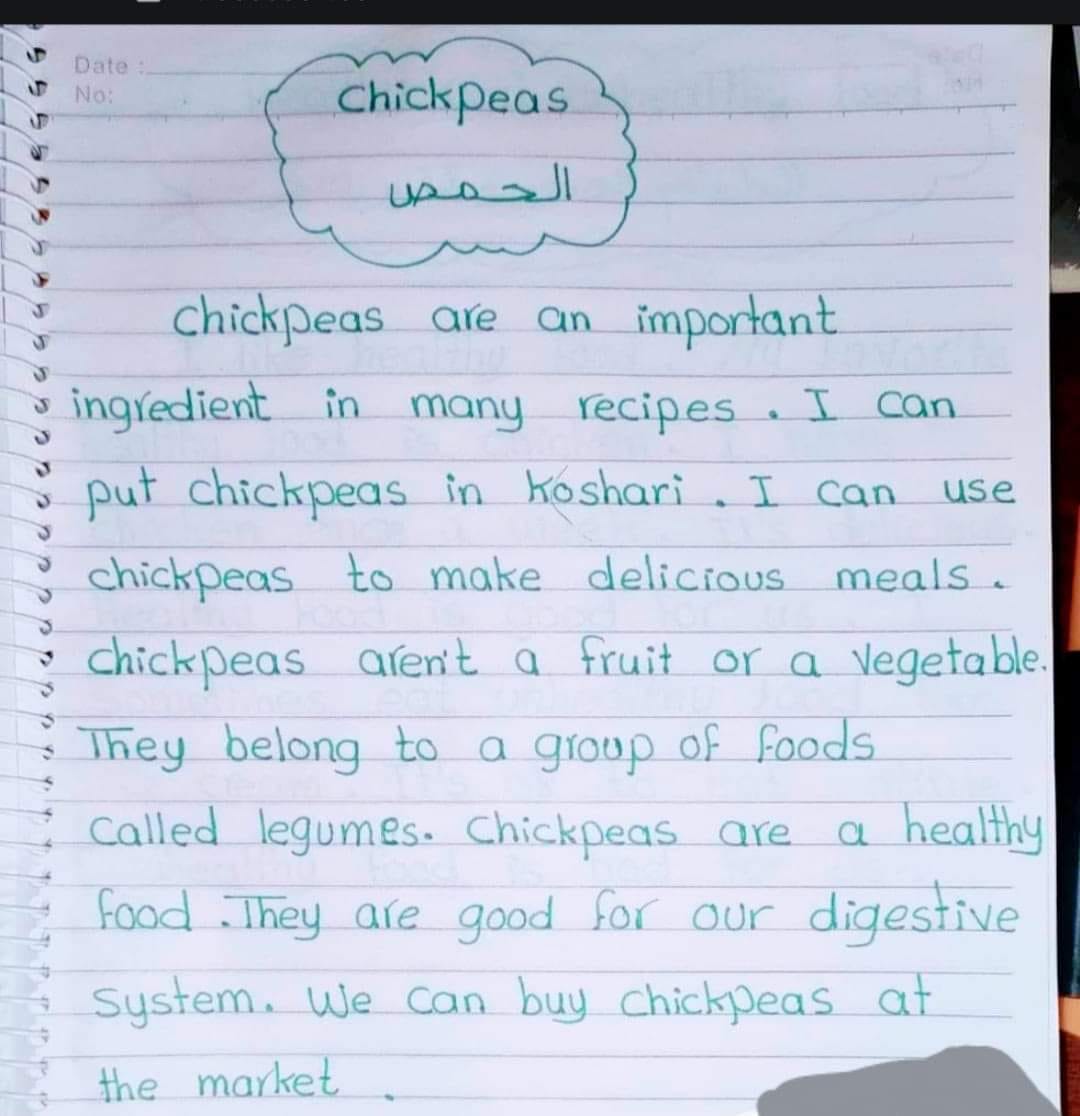 Date :
No:
Chickpeas
الحمص
Chickpeas are an important
ingredient in many recipes . I can
put chickpeas in Koshari . I can use
chickpeas to make delicious meals .
Chickpeas aren't a fruit or a vegetable.
They belong to a group of foods
called legumes. Chickpeas are a healthy
food . They are good for our digestive
system. We can buy chickpeas at
the market .